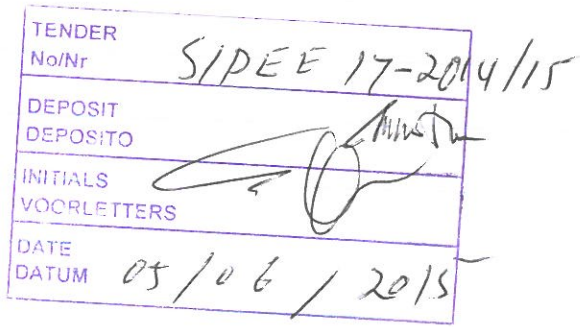 TENDER
No/Nr S/DEE 17-2014/15
DEPOSIT
DEPOSITO
INITIALS
VOORLETTERS
DATE
DATUM 05/06/2015